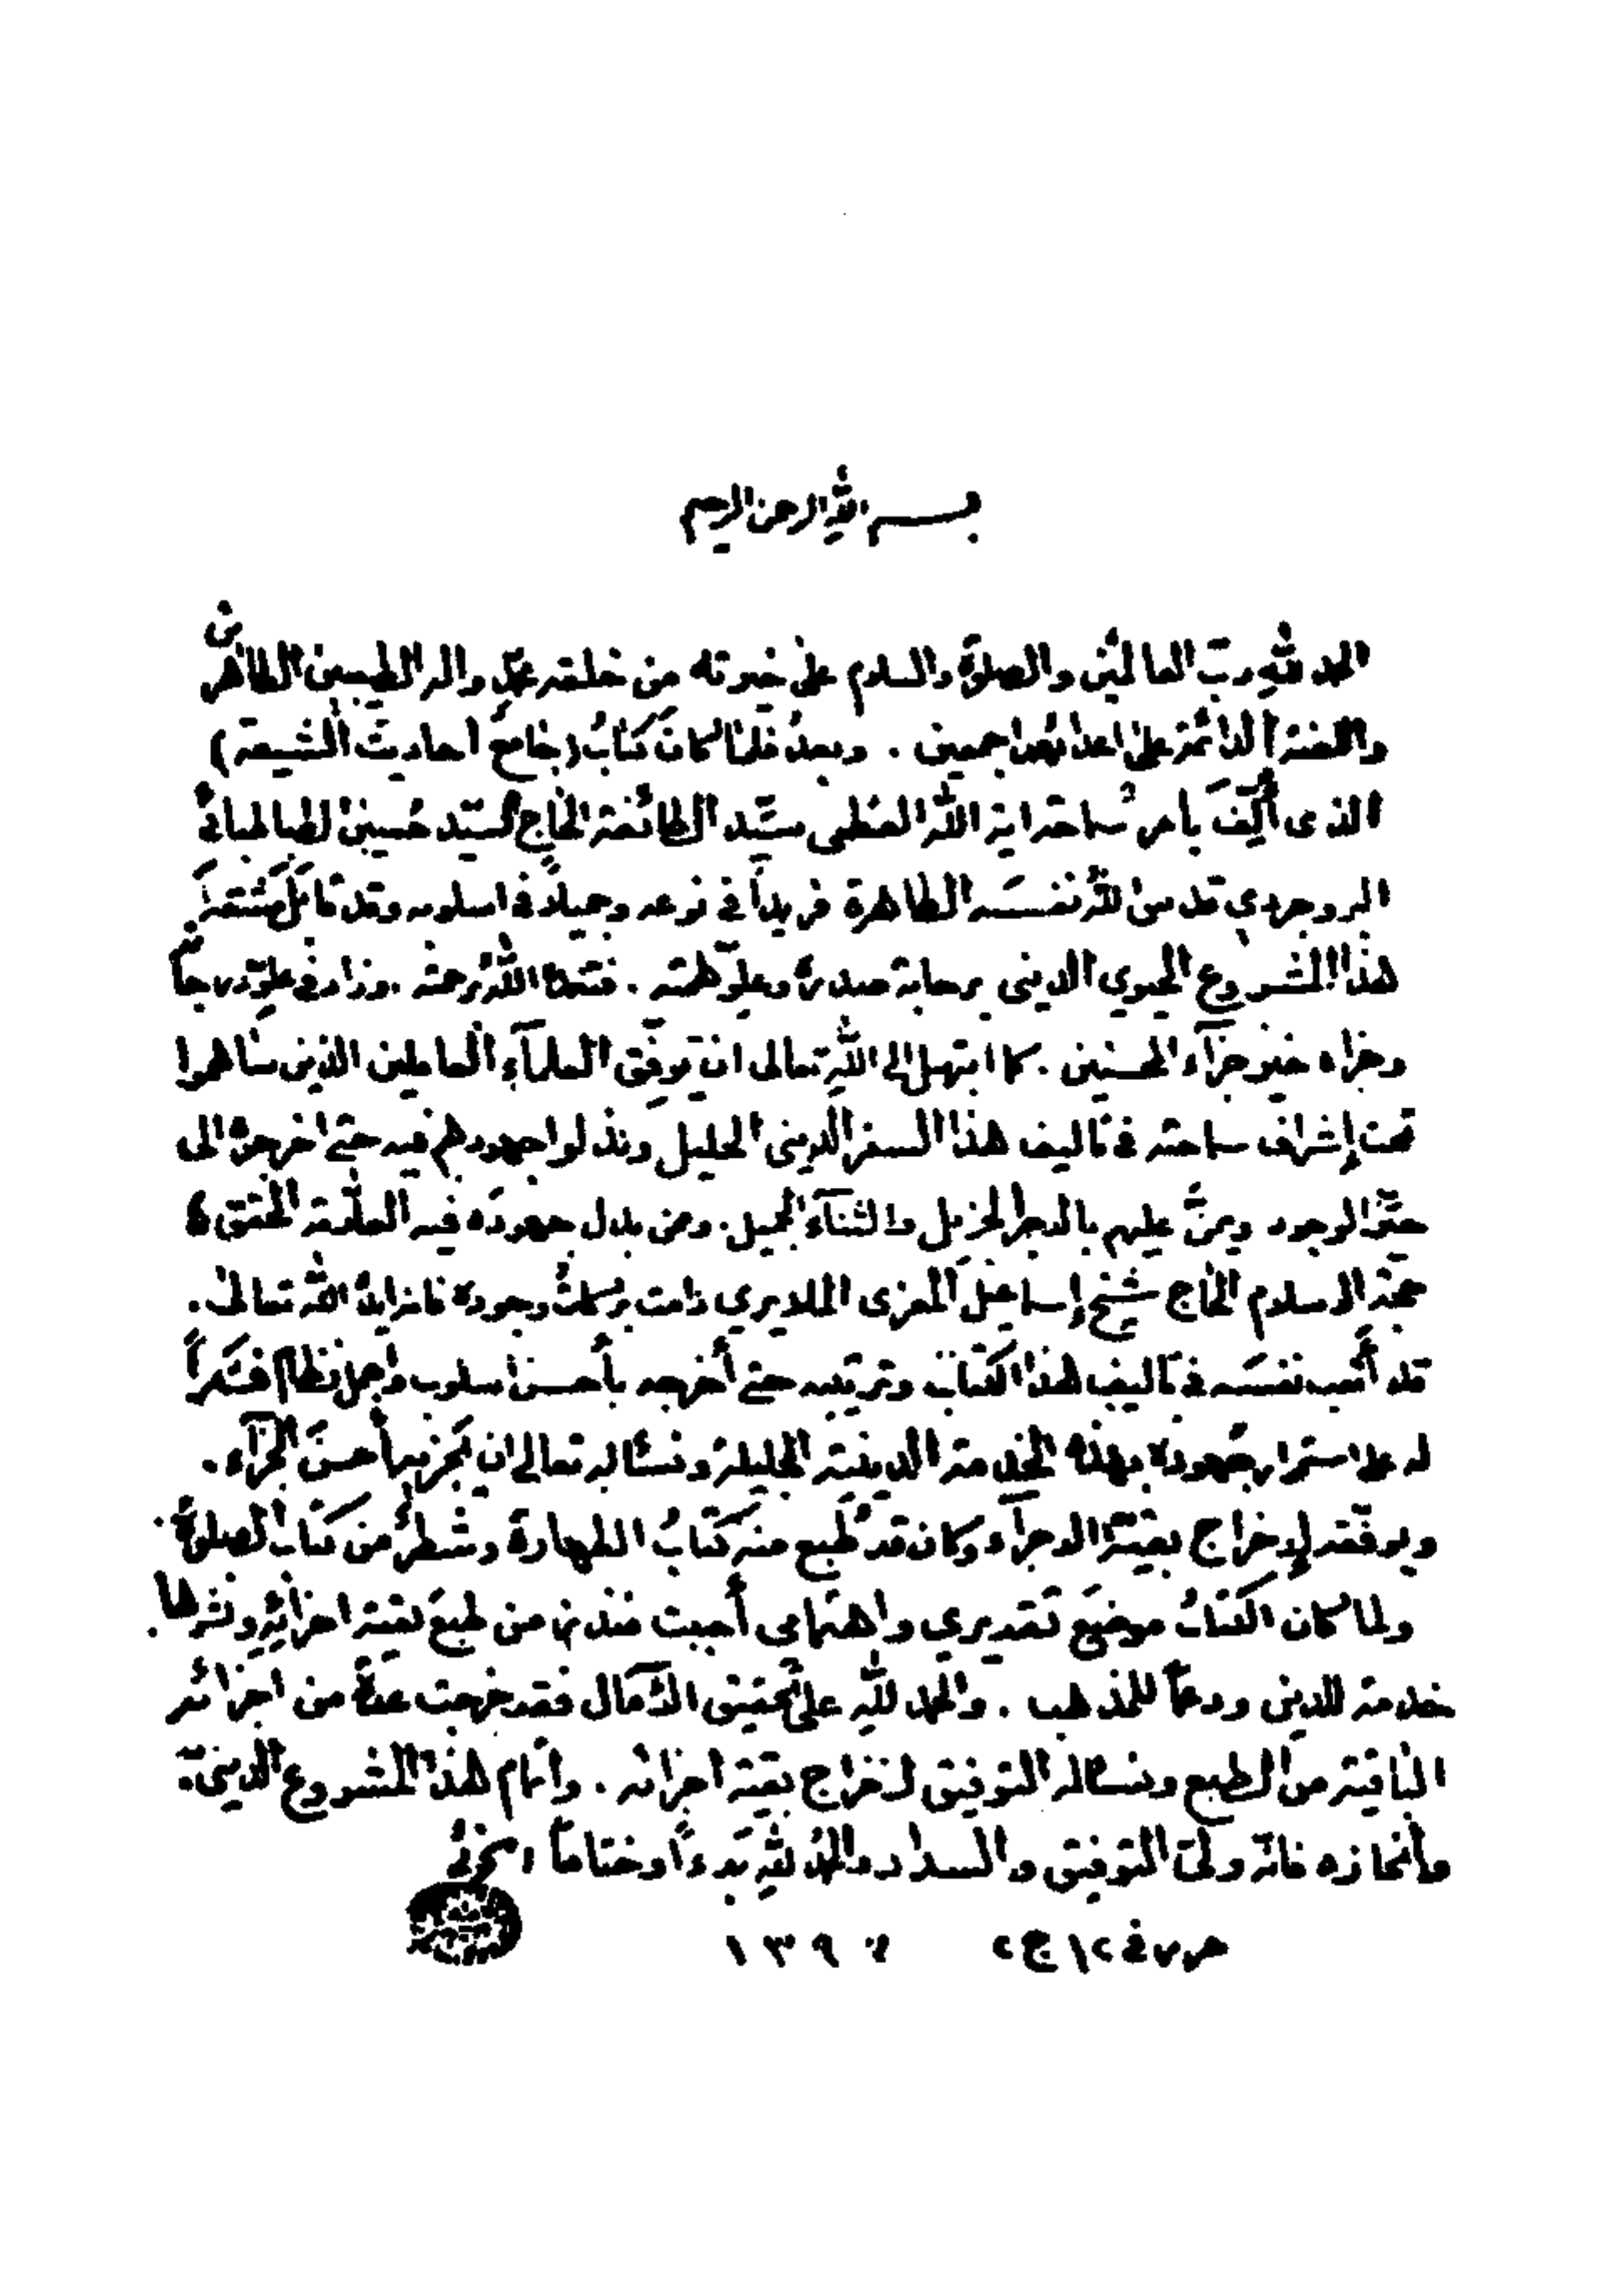 بسم الله الرحمن الرحيم
الحمد لله رب العالمين والصلوة والسلام على خيرته من خلقه محمد واله الطيبين الطاهرين
واللعنة الدائمة على اعدائهم اجمعين . وبعد فلما كان كتاب (جامع احاديث الشيعة)
الذى ألّف بأمر سماحة اية الله العظمى سيّد الطائفة الحاج السيّد حسين الطباطبائى
البروجردي قدس الله نفسه الطاهرة فريداً في نوعه وجميلاً في اسلوبه وقد
هذا المشروع الحيوي الدينى برحابة صدره وعلوّ همّته . الله برحمته . وزاد في علوّ درجاته
وجزاه خير جزآء المحسنين . كما ابتهل الى الله تعالى ان يوفّق العلمآء العاملين الذين ساهموا
تحت إشراف سماحته في تاليف هذا السفر الدينى الجليل وبذلوا جهودهم فيه حتى اخرجوه الى
حيّز الوجود ويمنّ عليهم بالاجر الجزيل والثنآء الجميل . وممن بذل جهوده فيه العلّامة المحقق
حجة الاسلام الحاج شيخ إسماعيل المعزى الملايري دامت بركات وجوده فانه ايده الله تعالى .
قد أتعب نفسه في تاليف هذا الكتاب وترتيبه حتى أخرجه بأحسن اسلوب واجمل نظام فشكراً
له على استمرار جهوده بهذه الخدمة الدينية الجليلة ونسئاله تعالى ان يجزيه أحسن الجزآء .
ويوفقه لإخراج بقيّة الاجزآء وكان قد طبع منه كتاب الطهارة وشطر من كتاب الصلوة .
ولما كان الكتاب موضع تقديري واهتمامى أحببت من طبع بقية اجزائه ونشرها .
خدمة للدين ودعماً للمذهب . والحمد لله على تحقيق الآمال فقد خرجت عدة من اجزائه
الباقية من الطبع ونسئاله التوفيق لاخراج بقية اجزائه . واتمام هذا المشروع الدينى .
وأنجازه فانه ولىّ التوفيق والسداد والحمد لله بدءاً وختاماً الخوئى
حرر في ١٢ ج٢ ١٣٩٦